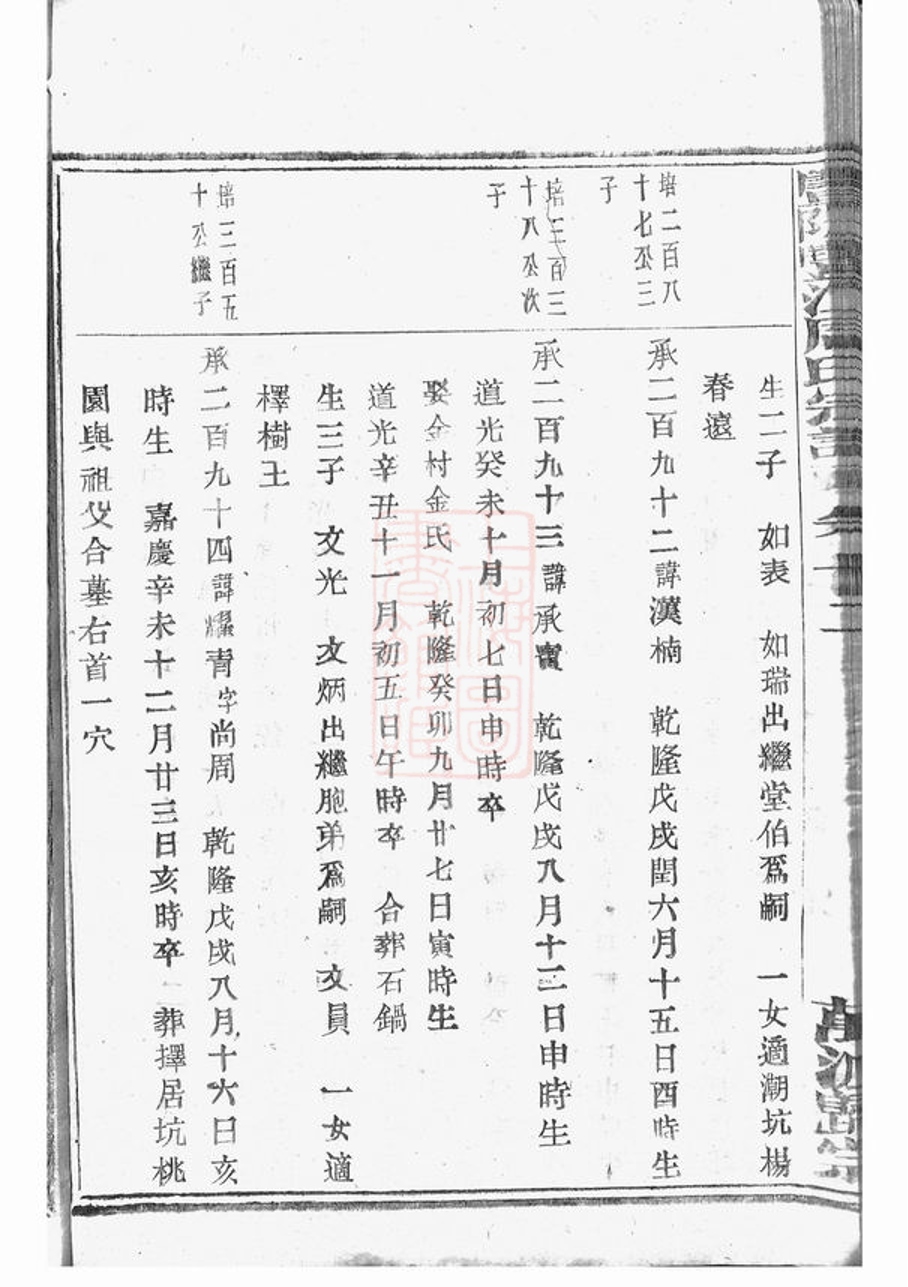 生二子　如表　如瑞出繼堂伯爲嗣　一女適潮坑楊
春遠
培二百八
十七公三
子
承二百九十二諱漢楠　乾隆戊戌閏六月十五日酉時生
培三百三
十八公次
子
承二百九十三諱承寶　乾隆戊戌八月十三日申時生
道光癸未十月初七日申時卒
娶金村金氏　乾隆癸卯九月廿七日寅時生
道光辛丑十一月初五日午時卒　合葬石鍋
生三子　文光　文炳出繼胞弟爲嗣　文員　一女適
檡樹王
培三百五
十公繼子
承二百九十四諱耀青字尚周　乾隆戊戌八月十六日亥
時生　嘉慶辛未十二月廿三日亥時卒　葬擇居坑桃
園與祖父合墓右首一穴